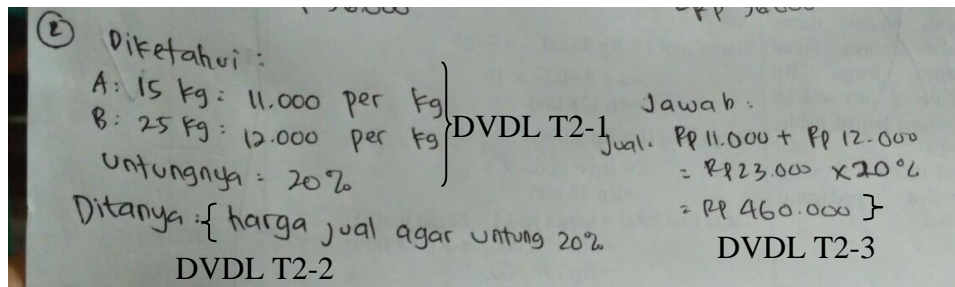 ②
Diketahui :
A : 15 kg : 11.000 per kg
B : 25 kg : 12.000 per kg
DVDL T2-1
untungnya = 20%
Ditanya : { harga jual agar untung 20%
DVDL T2-2
Jawab :
Jual. Rp 11.000 + Rp 12.000
= Rp23.000 x20%
= Rp 460.000 }
DVDL T2-3